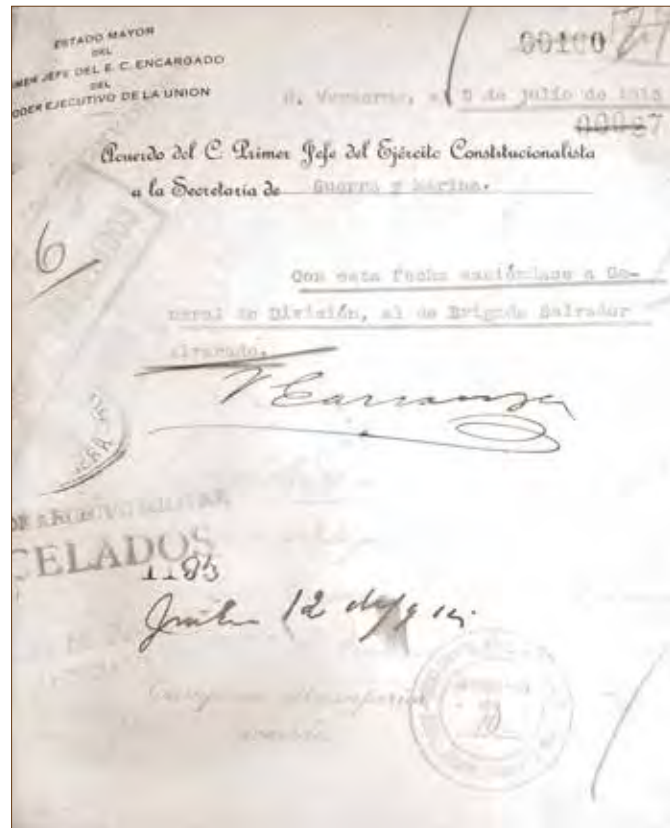 ESTADO MAYOR
DEL
MER JEFE DEL E. C. ENCARGADO
DEL
ODER EJECUTIVO DE LA UNION
00100
H. Veracruz, a 5 de julio de 1915
00087
Acuerdo del C. Primer Jefe del Ejército Constitucionalista
a la Secretaría de Guerra y Marina.
6
Con esta fecha asciéndase a Ge-
neral de División, al de Brigada Salvador
Alvarado.
V Carranza
DE ARCHIVO MILITAR
CELADOS
1195
Julio 12 de 1915